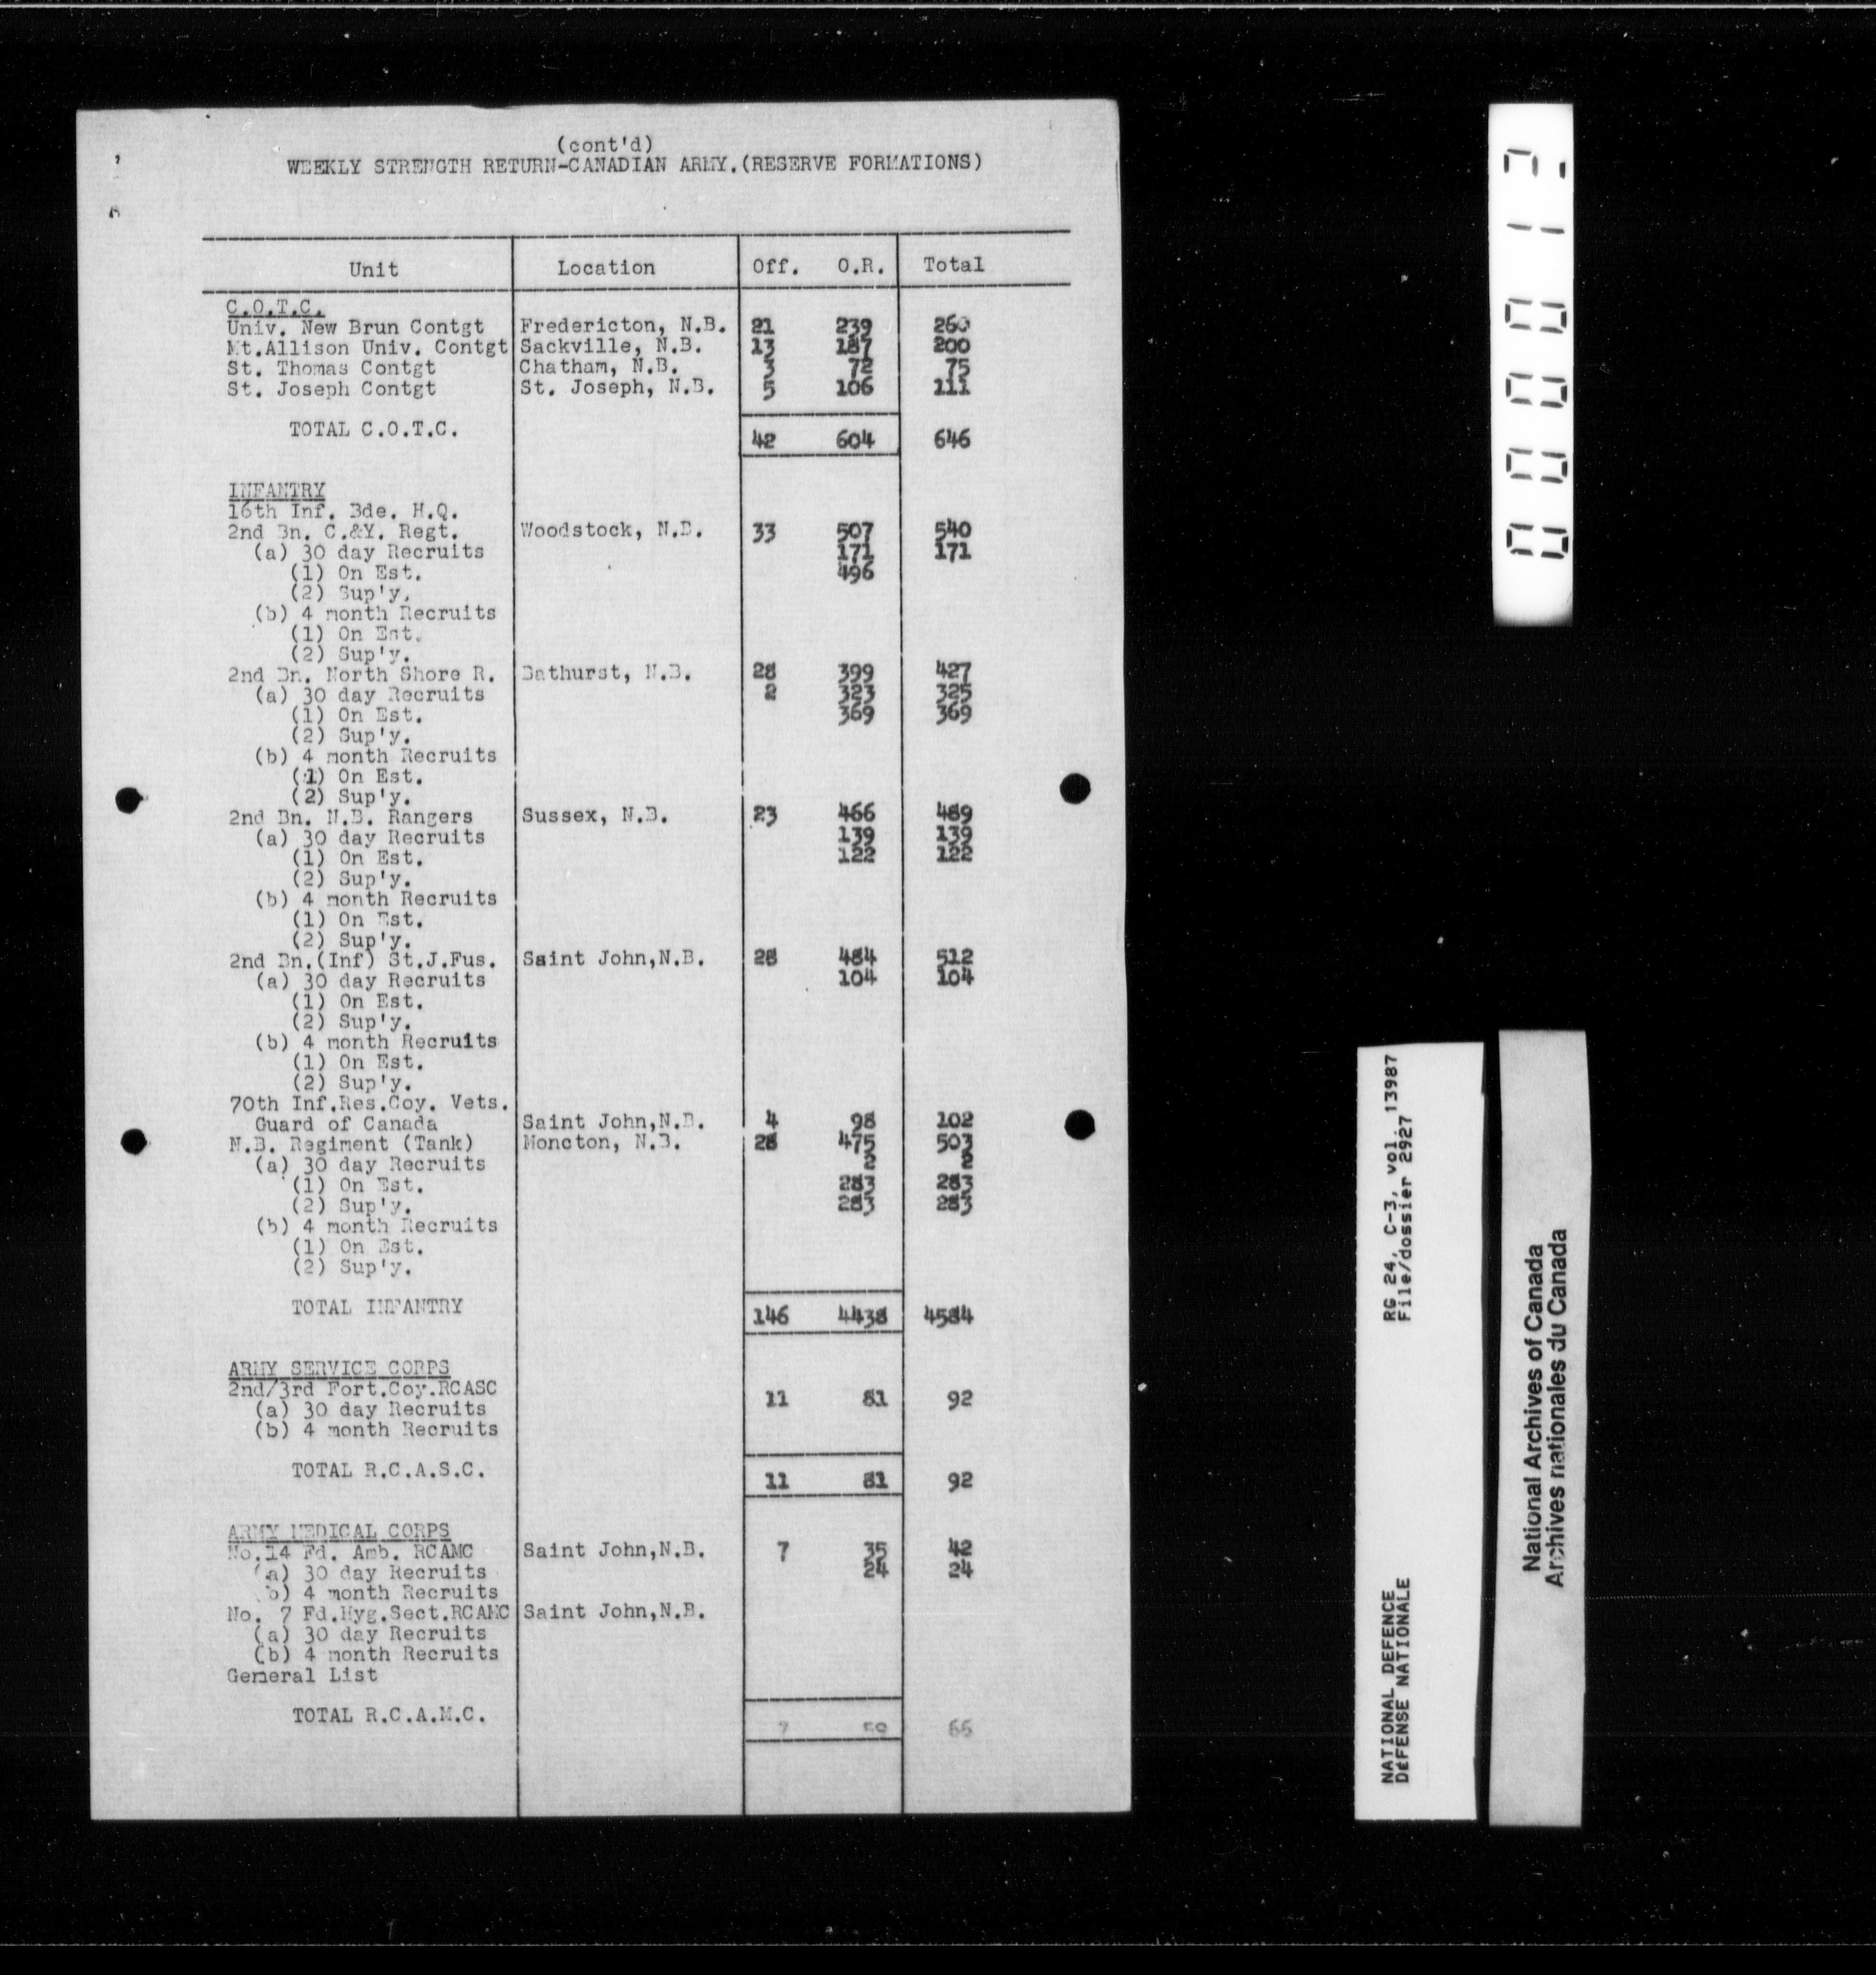 (cont'd)
WEEKLY STRENGTH RETURN-CANADIAN ARMY.(RESERVE FORMATIONS)
Unit Location Off. O.R. Total
C.O.T.C.
Univ. New Brun Contgt Fredericton, N.B. 21 239 260
Mt.Allison Univ. Contgt Sackville, N.B. 13 187 200
St. Thomas Contgt Chatham, N.B. 3 72 75
St. Joseph Contgt St. Joseph, N.B. 5 106 111
TOTAL C.O.T.C. 42 604 646
INFANTRY
16th Inf. Bde. H.Q.
2nd Bn. C.&Y. Regt. Woodstock, N.B. 33 507 540
(a) 30 day Recruits 171 171
(1) On Est. 496
(2) Sup'y.
(b) 4 month Recruits
(1) On Est.
(2) Sup'y.
2nd Bn. North Shore R. Bathurst, N.B. 28 399 427
(a) 30 day Recruits 2 323 325
(1) On Est. 369 369
(2) Sup'y.
(b) 4 month Recruits
(1) On Est.
(2) Sup'y.
2nd Bn. N.B. Rangers Sussex, N.B. 23 466 489
(a) 30 day Recruits 139 139
(1) On Est. 122 122
(2) Sup'y.
(b) 4 month Recruits
(1) On Est.
(2) Sup'y.
2nd Bn.(Inf) St.J.Fus. Saint John,N.B. 28 484 512
(a) 30 day Recruits 104 104
(1) On Est.
(2) Sup'y.
(b) 4 month Recruits
(1) On Est.
(2) Sup'y.
70th Inf.Res.Coy. Vets.
Guard of Canada Saint John,N.B. 4 98 102
N.B. Regiment (Tank) Moncton, N.B. 28 475 503
(a) 30 day Recruits 2 2
(1) On Est. 283 283
(2) Sup'y. 283 283
(b) 4 month Recruits
(1) On Est.
(2) Sup'y.
TOTAL INFANTRY 146 4438 4584
ARMY SERVICE CORPS
2nd/3rd Fort.Coy.RCASC 11 81 92
(a) 30 day Recruits
(b) 4 month Recruits
TOTAL R.C.A.S.C. 11 81 92
ARMY MEDICAL CORPS
No.14 Fd. Amb. RCAMC Saint John,N.B. 7 35 42
(a) 30 day Recruits 24 24
(b) 4 month Recruits
No. 7 Fd.Hyg.Sect.RCAMC Saint John,N.B.
(a) 30 day Recruits
(b) 4 month Recruits
General List
TOTAL R.C.A.M.C. 7 59 66
000012
NATIONAL DEFENCE RG 24, C-3, vol. 13987
DÉFENSE NATIONALE File/dossier 2927
National Archives of Canada
Archives nationales du Canada